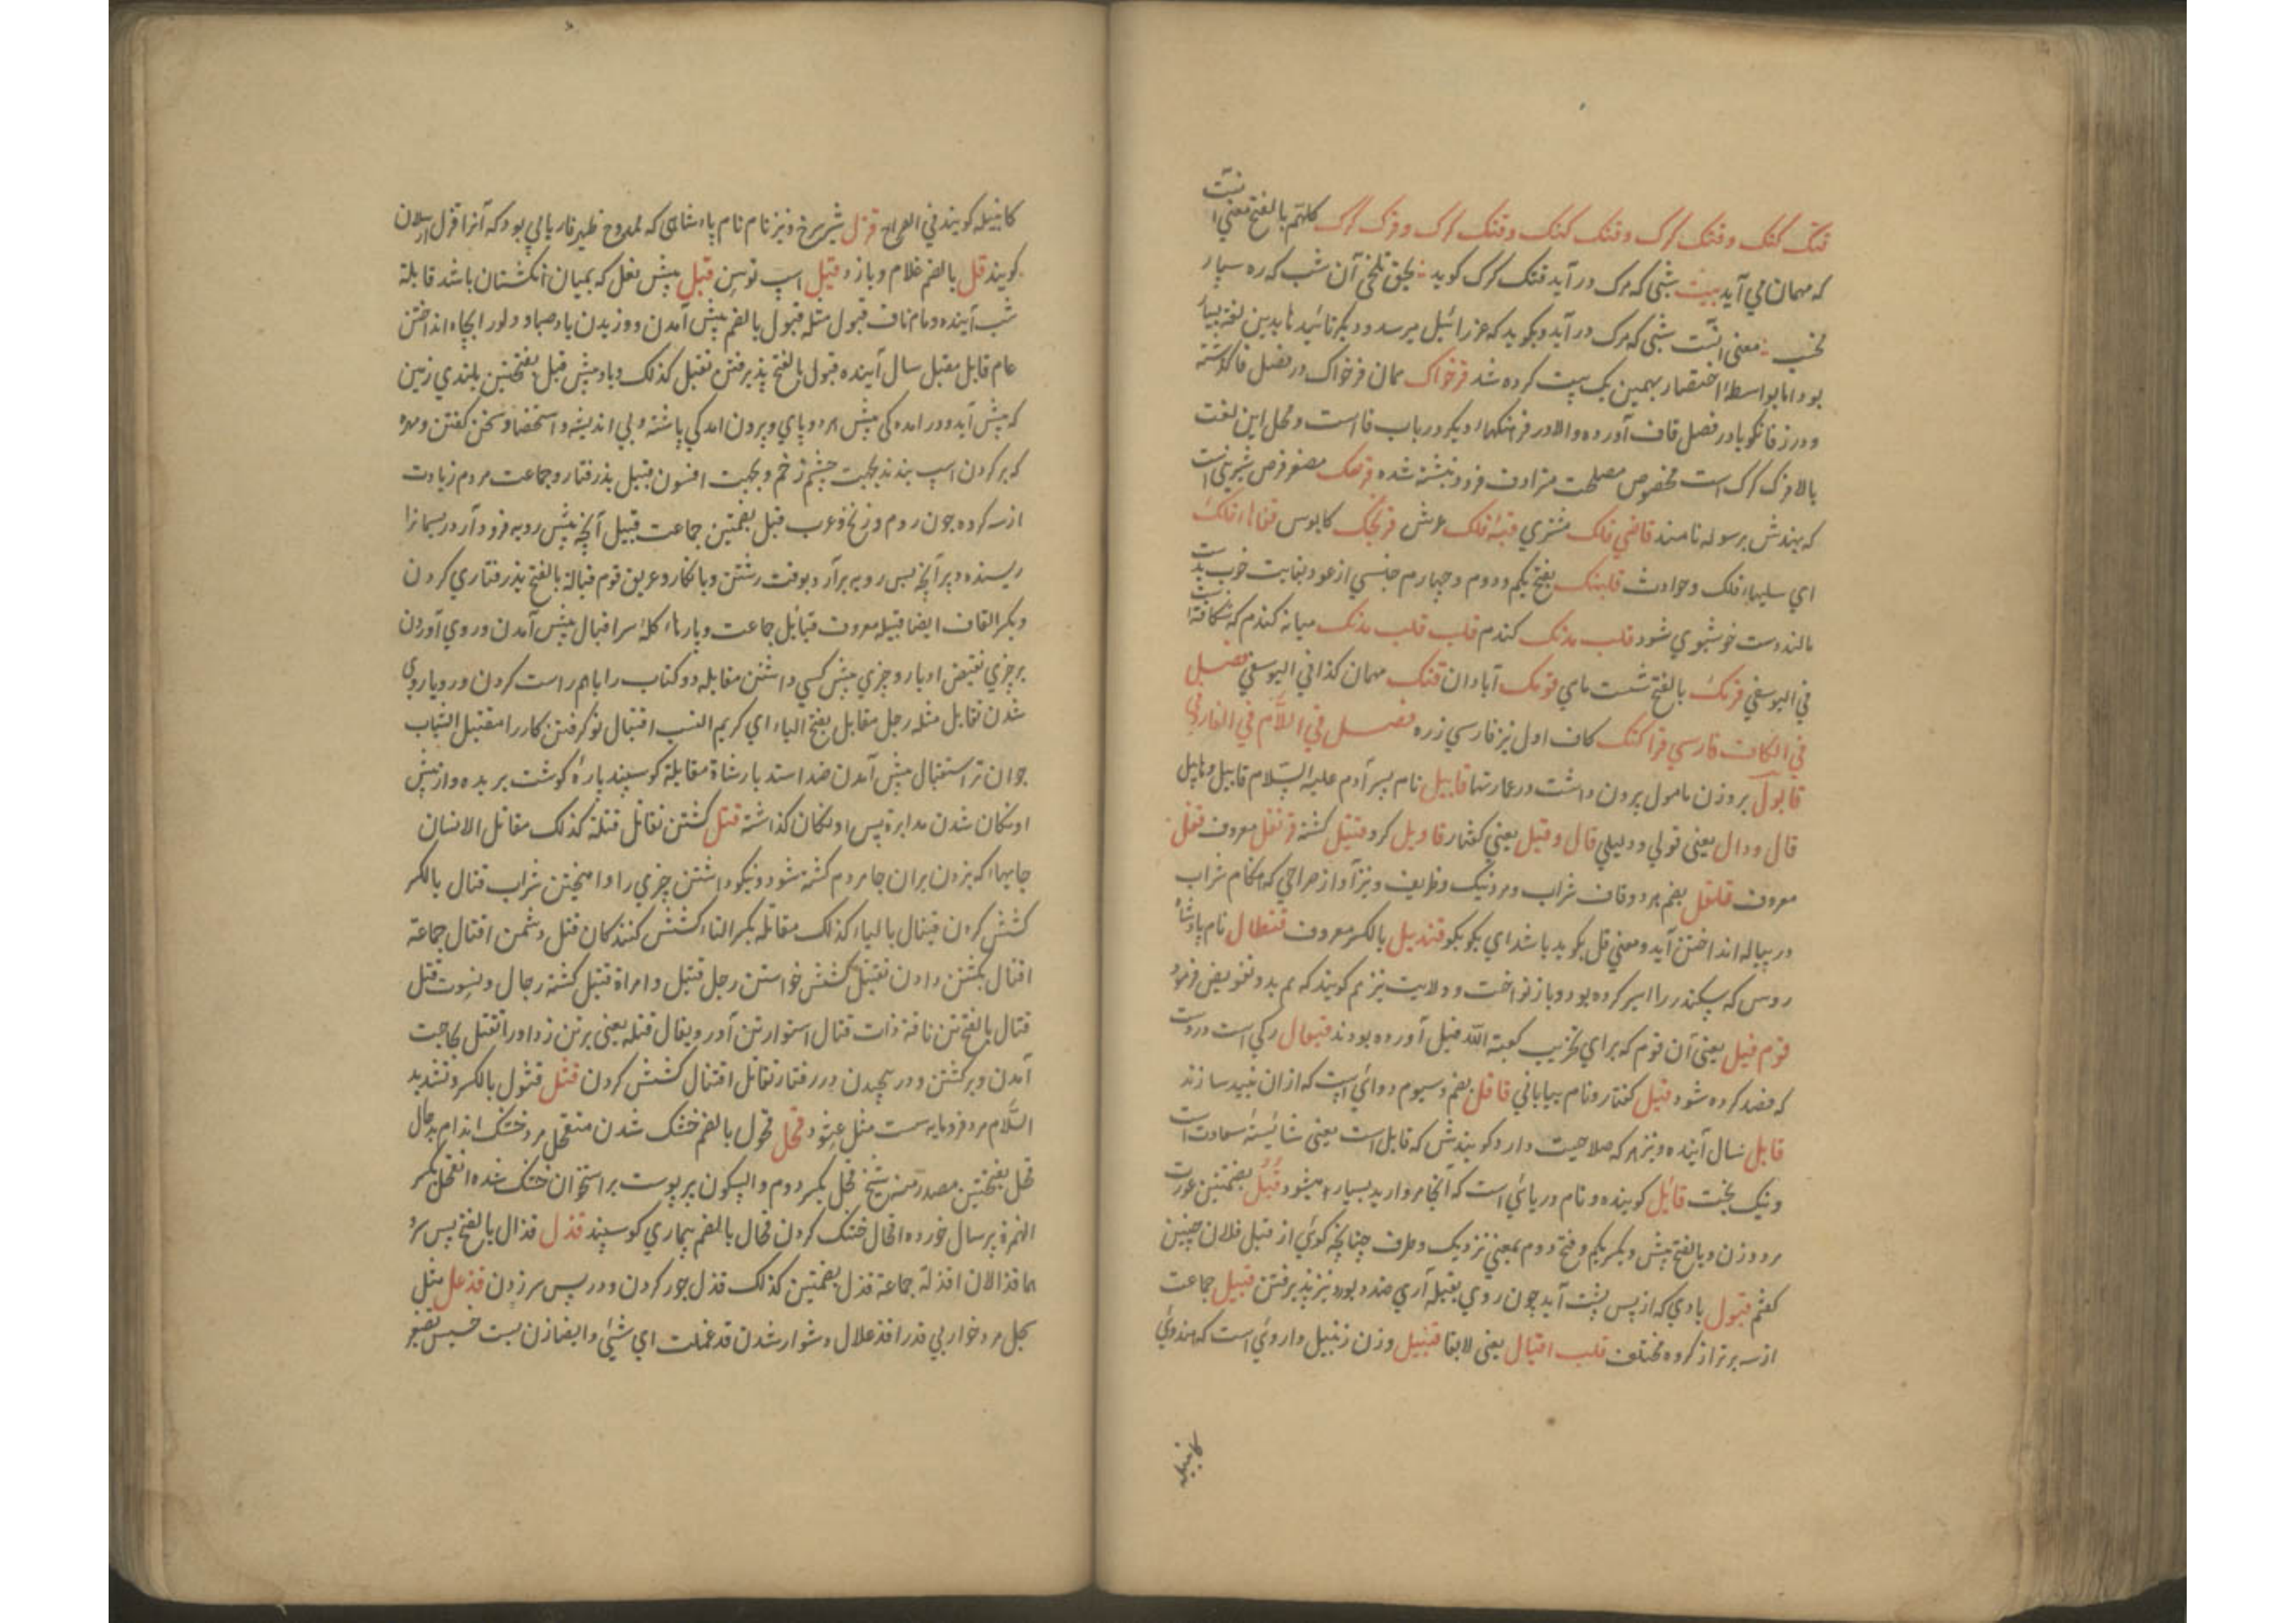 قتک کتک و قتک کرک و قتک کتک و قتک کرک و قرک کرک کلهم بالفتح معنی انست
که مهمان می آید بیت شبی که مرک در آید قتک کرک کوید بحق تلخی آن شب که ره سپار
مخسب معنی انست شبی که مرک در آید و بکوید که عزرائیل میرسد و دیکر
بود اما بواسطه اختصار بهمین یک بیت کرده شد قرخواک همان فرخواک در فصل فا کذشته
و در زفانکویا در فصل قاف آورده و الا در فرهنکهاء دیکر در باب فا است و محل این لغت
بالا قرک کرک است مخصوص مصلحت مترادف فرود نبشته شده قرصک مصغر قرص شیرینی است
که هندش برسوله نامند قاضی فلک مشتری قبه فلک عرش قرنجک کابوس قفاهاء فلک
ای سلیهاء فلک و حوادث قلبنک بفتح یکم و دوم و چهارم جنسی از عود بغایت خوب
مالند دست خوشبوی شود قلب مدنک کندم قلب قلب مدنک میانه کندم که شکافته
فی الیوسفی قرمک بالفتح شست ماهی قومک آبادان قنک مهمان کذا فی الیوسفی فصل
فی الکاف فارسی قراکنک کاف اول نیز فارسی زره فصل فی اللام فی الفارسی
قابول بر وزن مامول برون داشت در عمارتها قابیل نام پسر آدم علیه السلام قابیل و هابیل
قال و دال یعنی قولی و دلیلی قال و قیل یعنی کفتار قاویل کرد قتیل کشته قرنفل معروف قفل
معروف قلقل بضم هر دو قاف شراب و مرد نیک و ظریف و نیز آواز صراحی که هنکام شراب
در پیاله انداختن آید و معنی قل بکوید باشد ای بکو بکو قندیل بالکسر معروف قنطال نام پادشاه
روس که سکندر را اسیر کرده بود و باز نواخت و ولایت نیز هم کویند که هم بدو تفویض فرمود
قوم فیل یعنی آن قوم که برای تخریب کعبة الله فیل آورده بودند قیفال رکی است در دست
که فصد کرده شود قیل کفتار و نام بیابانی قاقل بضم سیوم دوائی است که از ان نبید سازند
قابل سال آینده و نیز هر که صلاحیت دارد کویندش که قابل است یعنی شائسته سعادت است
و نیک بخت قائل کوینده و نام دریائی است که آنجا مروارید بسیار میشود قبل بضمتین عورت
مرد و زن و بالفتح پیش و بکسر یکم و فتح دوم بمعنی نزدیک و طرف چنانچه کوئی از قبل فلان چنین
کفتم قبول بادی که از پس پشت آید چون روی بقبله آری ضد دبور و نیز پذیرفتن قبیل جماعت
از سه برتر از کروه مختلف قلب اقبال یعنی لابقا قنبیل وزن زنبیل داروئی است که هندوی
کابنیله
کابنیله کویند فی الصراح قزل شیر سرخ و نیز نام نام پادشاهی که ممدوح ظهیر فاریابی بود که آنرا قزل ارسلان
کویند قل بالضم غلام و باز و قیل اسپ توسن قبل پیش بغل که بمیان انکشتان باشد قابلة
شب آینده و مام ناف قبول مثله قبول بالضم پیش آمدن و وزیدن باد صبا و دلو را بچاه انداختن
عام قابل مقبل سال آینده قبول بالفتح پذیرفتن تقبل کذلک و باد پیش قبل بفتحتین بلندی زمین
که پیش آید و در امدن کی پیش هر دو پای و برون امدکی پاشنه و بی اندیشه و استحضار سخن کفتن و مهره
که بر کردن اسپ بندند بجهت چشم زخم و بجهت افسون قبیل پذرفتار و جماعت مردم زیادت
از سه کروه چون روم و زنج و عرب قبل بضمتین جماعت قبیل آنچه پیش رویه فرود آرد ریسمانرا
ریسنده دبیر آنچه پس رویه برآرد بوقت رشتن و با نکار و عریف قوم قبالة بالفتح پذرفتاری کردن
و بکسر القاف ایضا قبیله معروف قبائل جماعت و پارهاء کله سر اقبال پیش آمدن و روی آوردن
بر چیزی نقیض ادبار و چیزی پیش کسی داشتن مقابله دو کتاب را با هم راست کردن و رویاروی
شدن تقابل مثله رجل مقابل بفتح الباء ای کریم النسب اقتبال نو کرفتن کار را مقتبل الشباب
جوان تر استقبال پیش آمدن ضد استدبار شاة مقابلة کوسپند پارۀ کوشت بریده و از پیش
اونکان شدن مدابرة پس اونکان کذاشته قتل کشتن تقاتل قتلة کذلک مقاتل الانسان
جایهاء که بزدن بران جا مردم کشته شود و نیکو داشتن چیزی را و امیختن شراب قتال بالکسر
کشش کردن قیتال بالیاء کذلک مقاتلة بکسر التاء کشش کنندکان قتل دشمن اقتال جماعة
اقتال بکشتن دادن تقتیل کشش خواستن رجل قتیل و امراة قتیل کشته رجال و نسوت قتل
قتال بالفتح تن ناقة ذات قتال استوار تن آور و یقال قتله یعنی بر تن زد او را تقتل بحاجت
آمدن و برکشتن و در پیچیدن در رفتار تقاتل اقتتال کشش کردن قثل قثول بالکسر و تشدید
اللام مرد فرومایه سست مثل عثول قحل قحول بالضم خشک شدن متقحل مرد خشک اندام بدحال
قحل بفتحتین مصدر منه شیخ قحل بکسر دوم و السکون پیر پوست بر استخوان خشک شده انقحل بکسر
الهمزة پیر سال خورده اقحال خشک کردن قحال بالضم بیماری کوسپند قذل قذال بالفتح پس سر
هما قذالان اقذلة جماعة قذل بضمتین کذلک قذل جور کردن و در پس سر زدن قذعل مثل
سجل مرد خوار بی قدر اقذعلال دشوار شدن قذعملت ای شیئ و ایضا زن پست خسیس